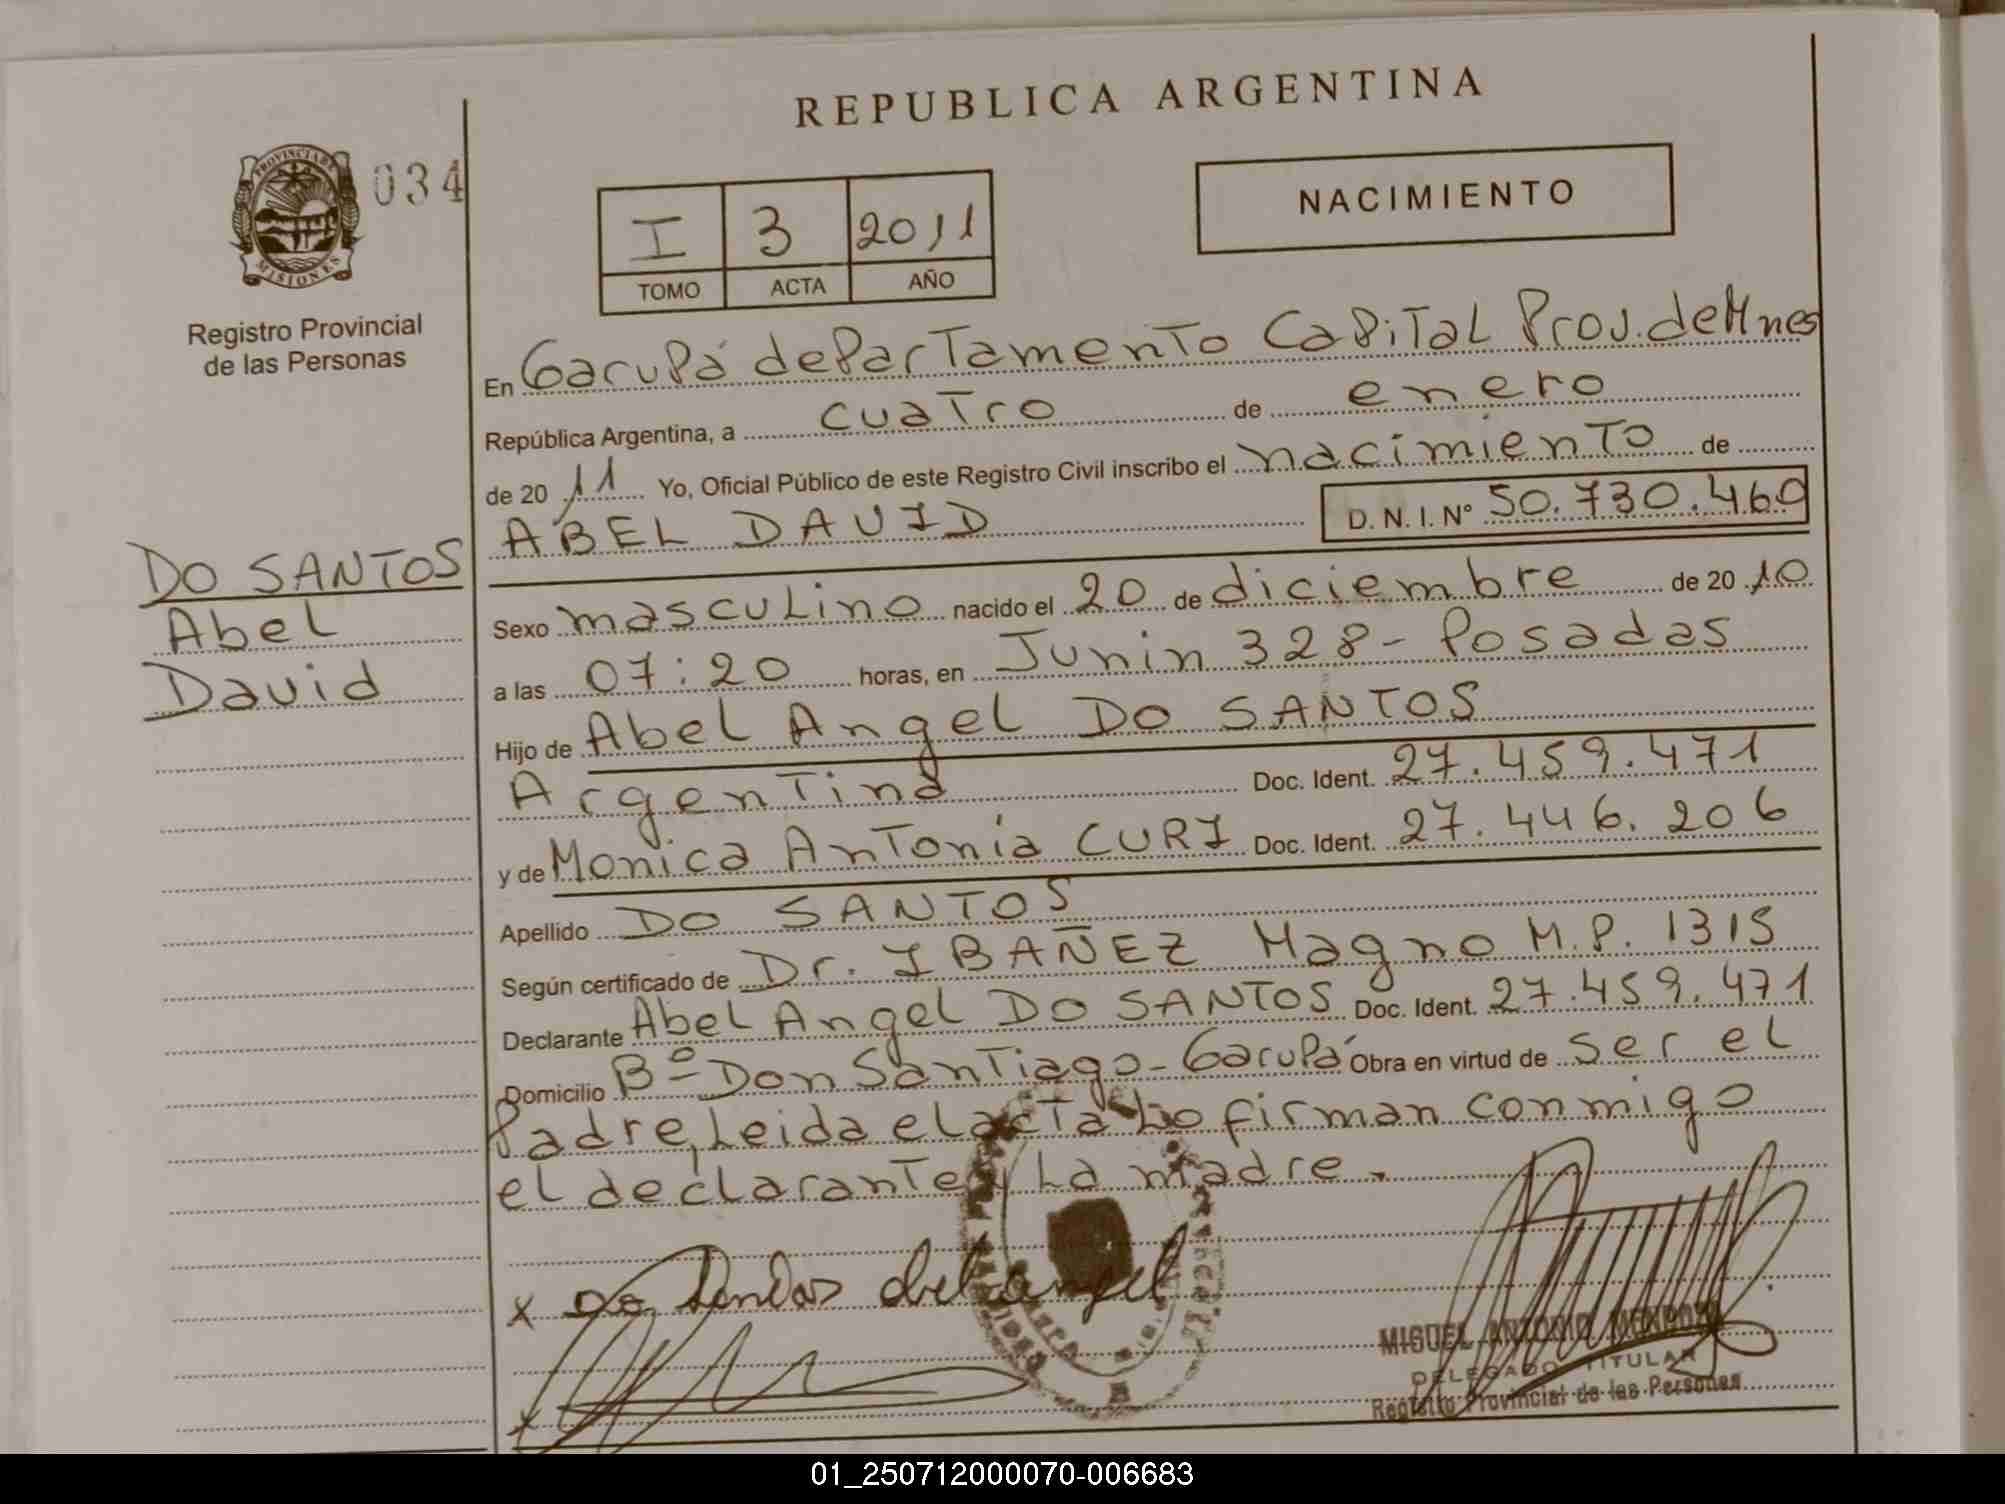 REPUBLICA ARGENTINA
PROVINCIA DE
MISIONES
034
Registro Provincial
de las Personas
I 3 2011
TOMO ACTA AÑO
NACIMIENTO
En Garupá departamento Capital Prov. de Mnes
República Argentina, a cuatro de enero
de 20 11 Yo, Oficial Público de este Registro Civil inscribo el nacimiento de
ABEL DAVID D. N. I. Nº 50.730.460
DO SANTOS
Abel
David
Sexo masculino nacido el 20 de diciembre de 20 10
a las 07:20 horas, en Junin 328 - Posadas
Hijo de Abel Angel DO SANTOS
Argentina Doc. Ident. 27.459.471
y de Monica Antonia CURI Doc. Ident. 27.446.206
Apellido DO SANTOS
Según certificado de Dr. IBAÑEZ Magno M.P. 1315
Declarante Abel Angel DO SANTOS Doc. Ident. 27.459.471
Domicilio Bº Don Santiago - Garupá Obra en virtud de ser el
Padre, Leida el acta Lo firman conmigo
el declarante y La madre.
x Do Santos abel angel
x
MIGUEL ANTONIO MENDOZA
DELEGADO TITULAR
Registro Provincial de las Personas
01_250712000070-006683